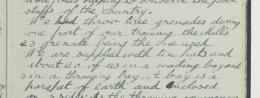 stuffs of the Country.
We had throw live grenades during
one part of our training the Mills
23 grenade being the one used.
We are supplied with tin hats and
about 20 of us in a waiting bay and
3 in a throwing bay. A bay is a
parapet of earth and enclosed